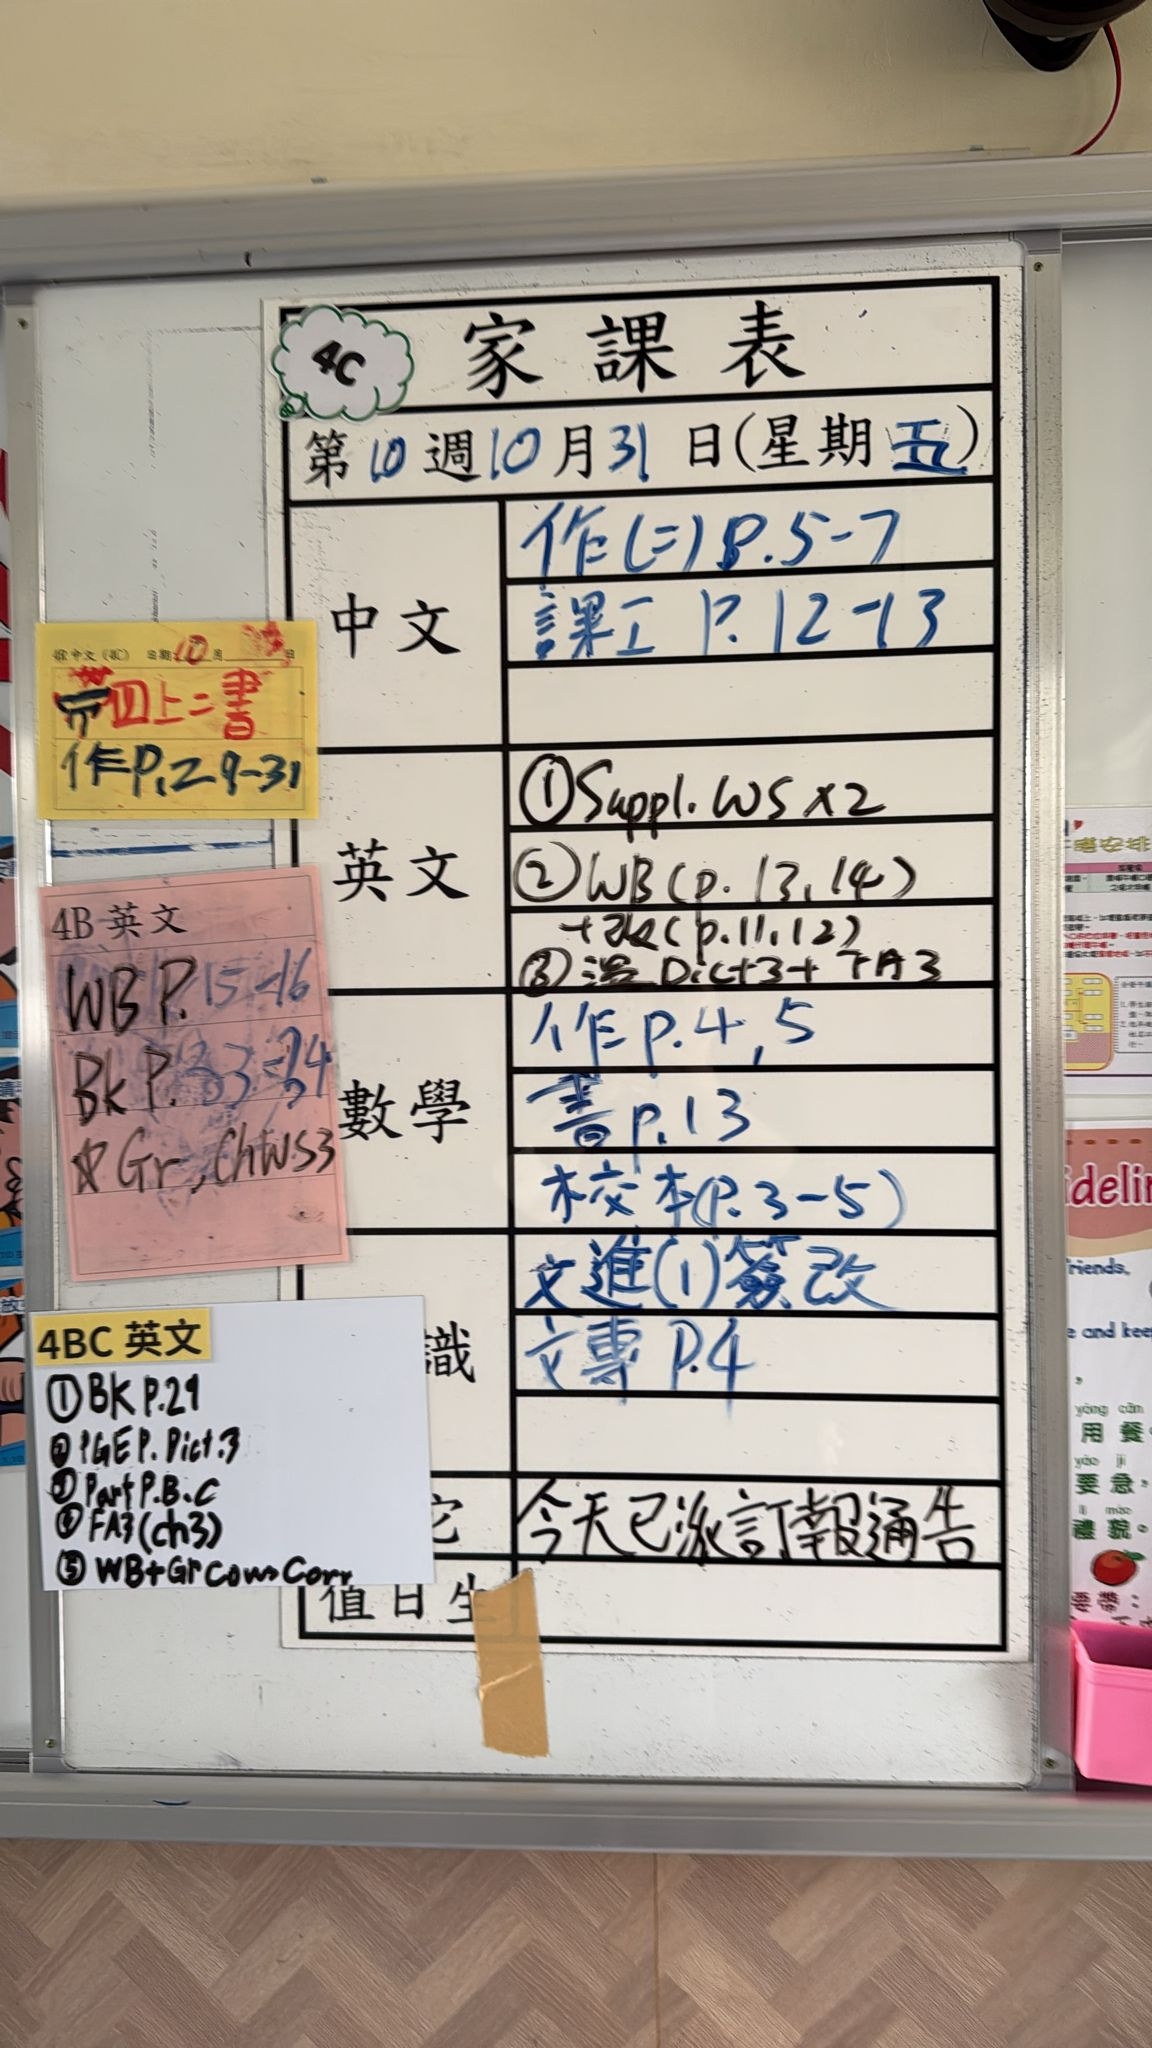 4C
家課表
第10週10月31日(星期五)
中文
作(二)P.5-7
課工 P.12-13
英文
①Suppl. WS x2
②WB(p.13,14)
+改(p.11,12)
③溫 Dict3+ FA3
數學
作p.4,5
書p.13
校本(P.3-5)
識
文進(1)簽改
文專 P.4
它
今天已派訂報通告
值日生
中文(4C) 日期10月 日
帶四上二書
作P.29-31
4B 英文
WB P.15-16
BK P.33-34
☆Gr, ChWS3
4BC 英文
①BK P.29
②PGE P. Dict.3
③Part P.B.C
④FA3(ch3)
⑤WB+Gr Corr
用餐
yòng cān
要急,
yào jí
禮貌。
lǐ mào
要帶:
安排
friends,
e and kee